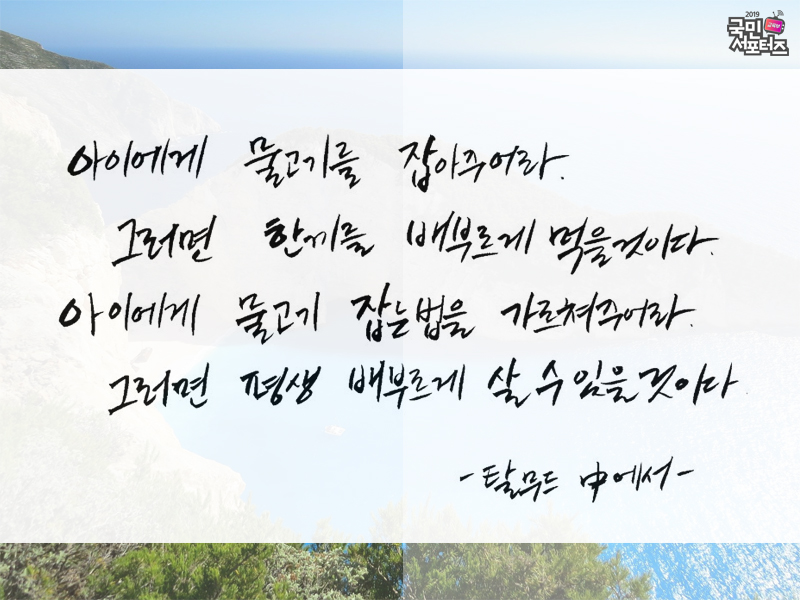 2019
국민
서포터즈
아이에게 물고기를 잡아주어라.
그러면 한끼를 배부르게 먹을것이다.
아이에게 물고기 잡는법을 가르쳐주어라.
그러면 평생 배부르게 살 수 있을것이다.
-탈무드 中에서-